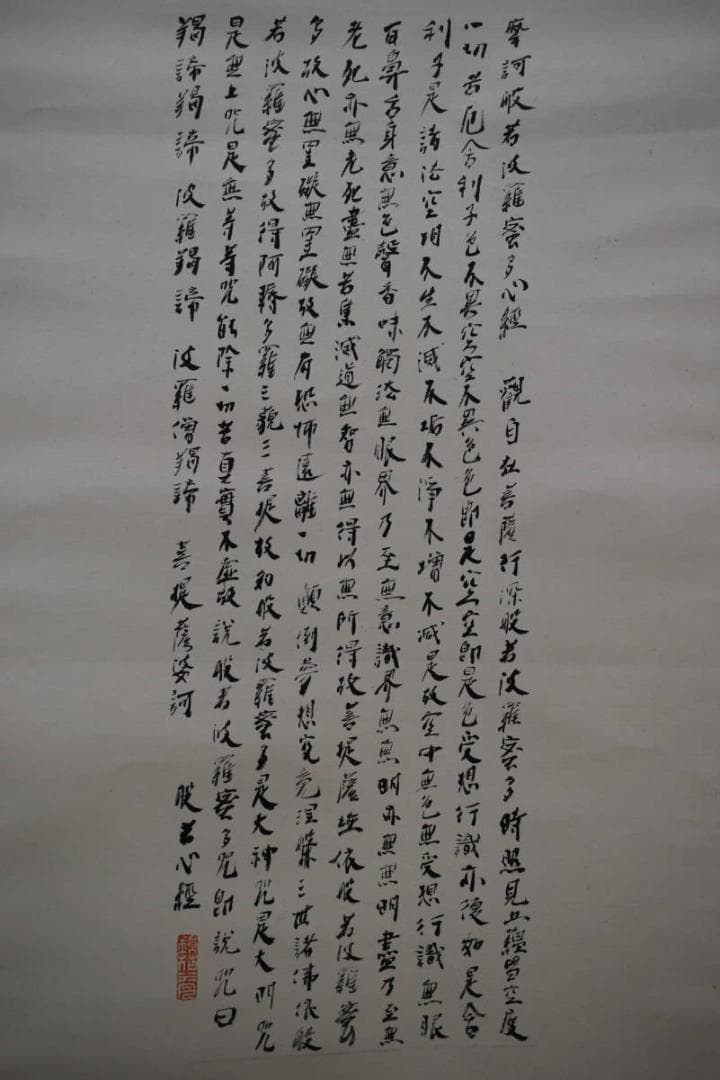 摩訶般若波羅蜜多心經 觀自在菩薩行深般若波羅蜜多時照見五蘊皆空度
一切苦厄舍利子色不異空空不異色色即是空空即是色受想行識亦復如是舍
利子是諸法空相不生不滅不垢不淨不增不減是故空中無色無受想行識無眼
耳鼻舌身意無色聲香味觸法無眼界乃至無意識界無無明亦無無明盡乃至無
老死亦無老死盡無苦集滅道無智亦無得以無所得故菩提薩埵依般若波羅蜜
多故心無罣礙無罣礙故無有恐怖遠離一切顛倒夢想究竟涅槃三世諸佛依般
若波羅蜜多故得阿耨多羅三藐三菩提故知般若波羅蜜多是大神咒是大明咒
是無上咒是無等等咒能除一切苦真實不虛故說般若波羅蜜多咒即說咒曰
羯諦羯諦 波羅羯諦 波羅僧羯諦 菩提薩婆訶 般若心經